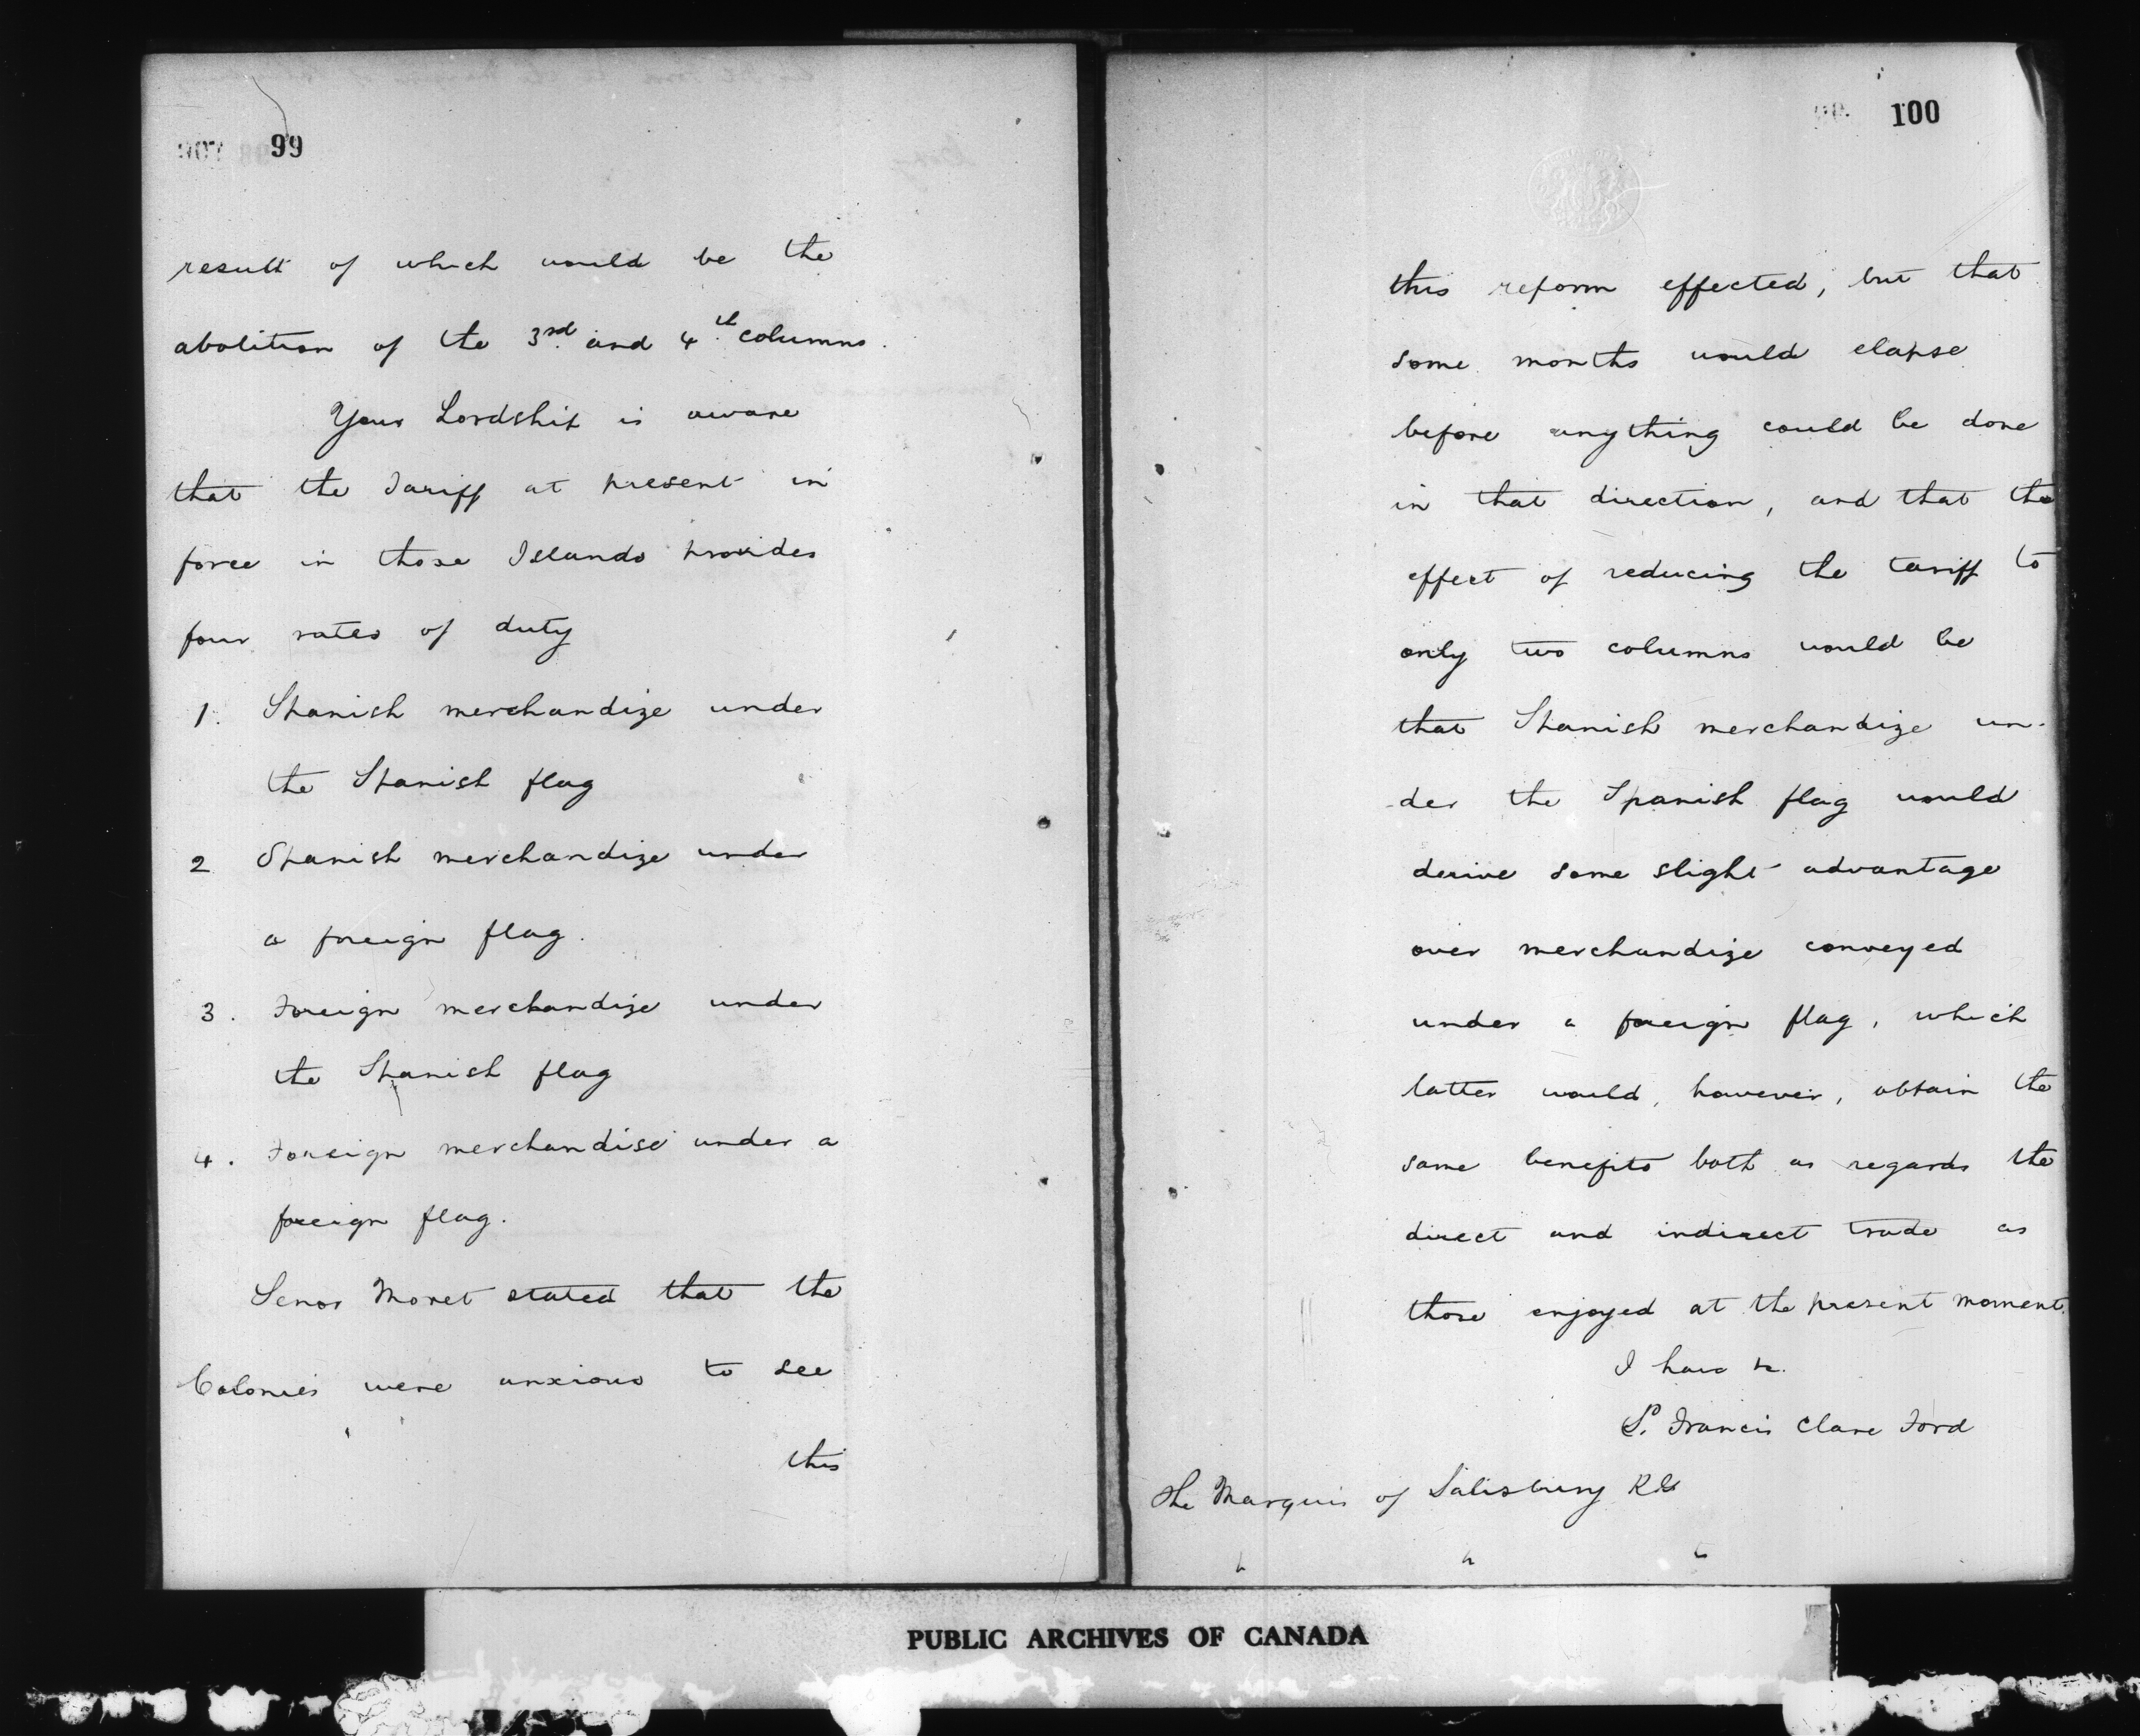 99
result of which would be the
abolition of the 3rd and 4th columns.
Your Lordship is aware
that the Tariff at present in
force in those Islands provides
four rates of duty
1. Spanish merchandize under
the Spanish flag
2 Spanish merchandize under
a foreign flag.
3. Foreign merchandize under
the Spanish flag
4. Foreign merchandise under a
foreign flag.
Senor Moret stated that the
Colonies were anxious to see
this
100
this reform effected, but that
some months would elapse
before anything could be done
in that direction, and that the
effect of reducing the tariff to
only two columns would be
that Spanish merchandize un-
-der the Spanish flag would
derive some slight advantage
over merchandize conveyed
under a foreign flag, which
latter would, however, obtain the
same benefits both as regards the
direct and indirect trade as
those enjoyed at the present moment.
I have &c.
Francis Clare Ford
The Marquis of Salisbury KG
PUBLIC ARCHIVES OF CANADA